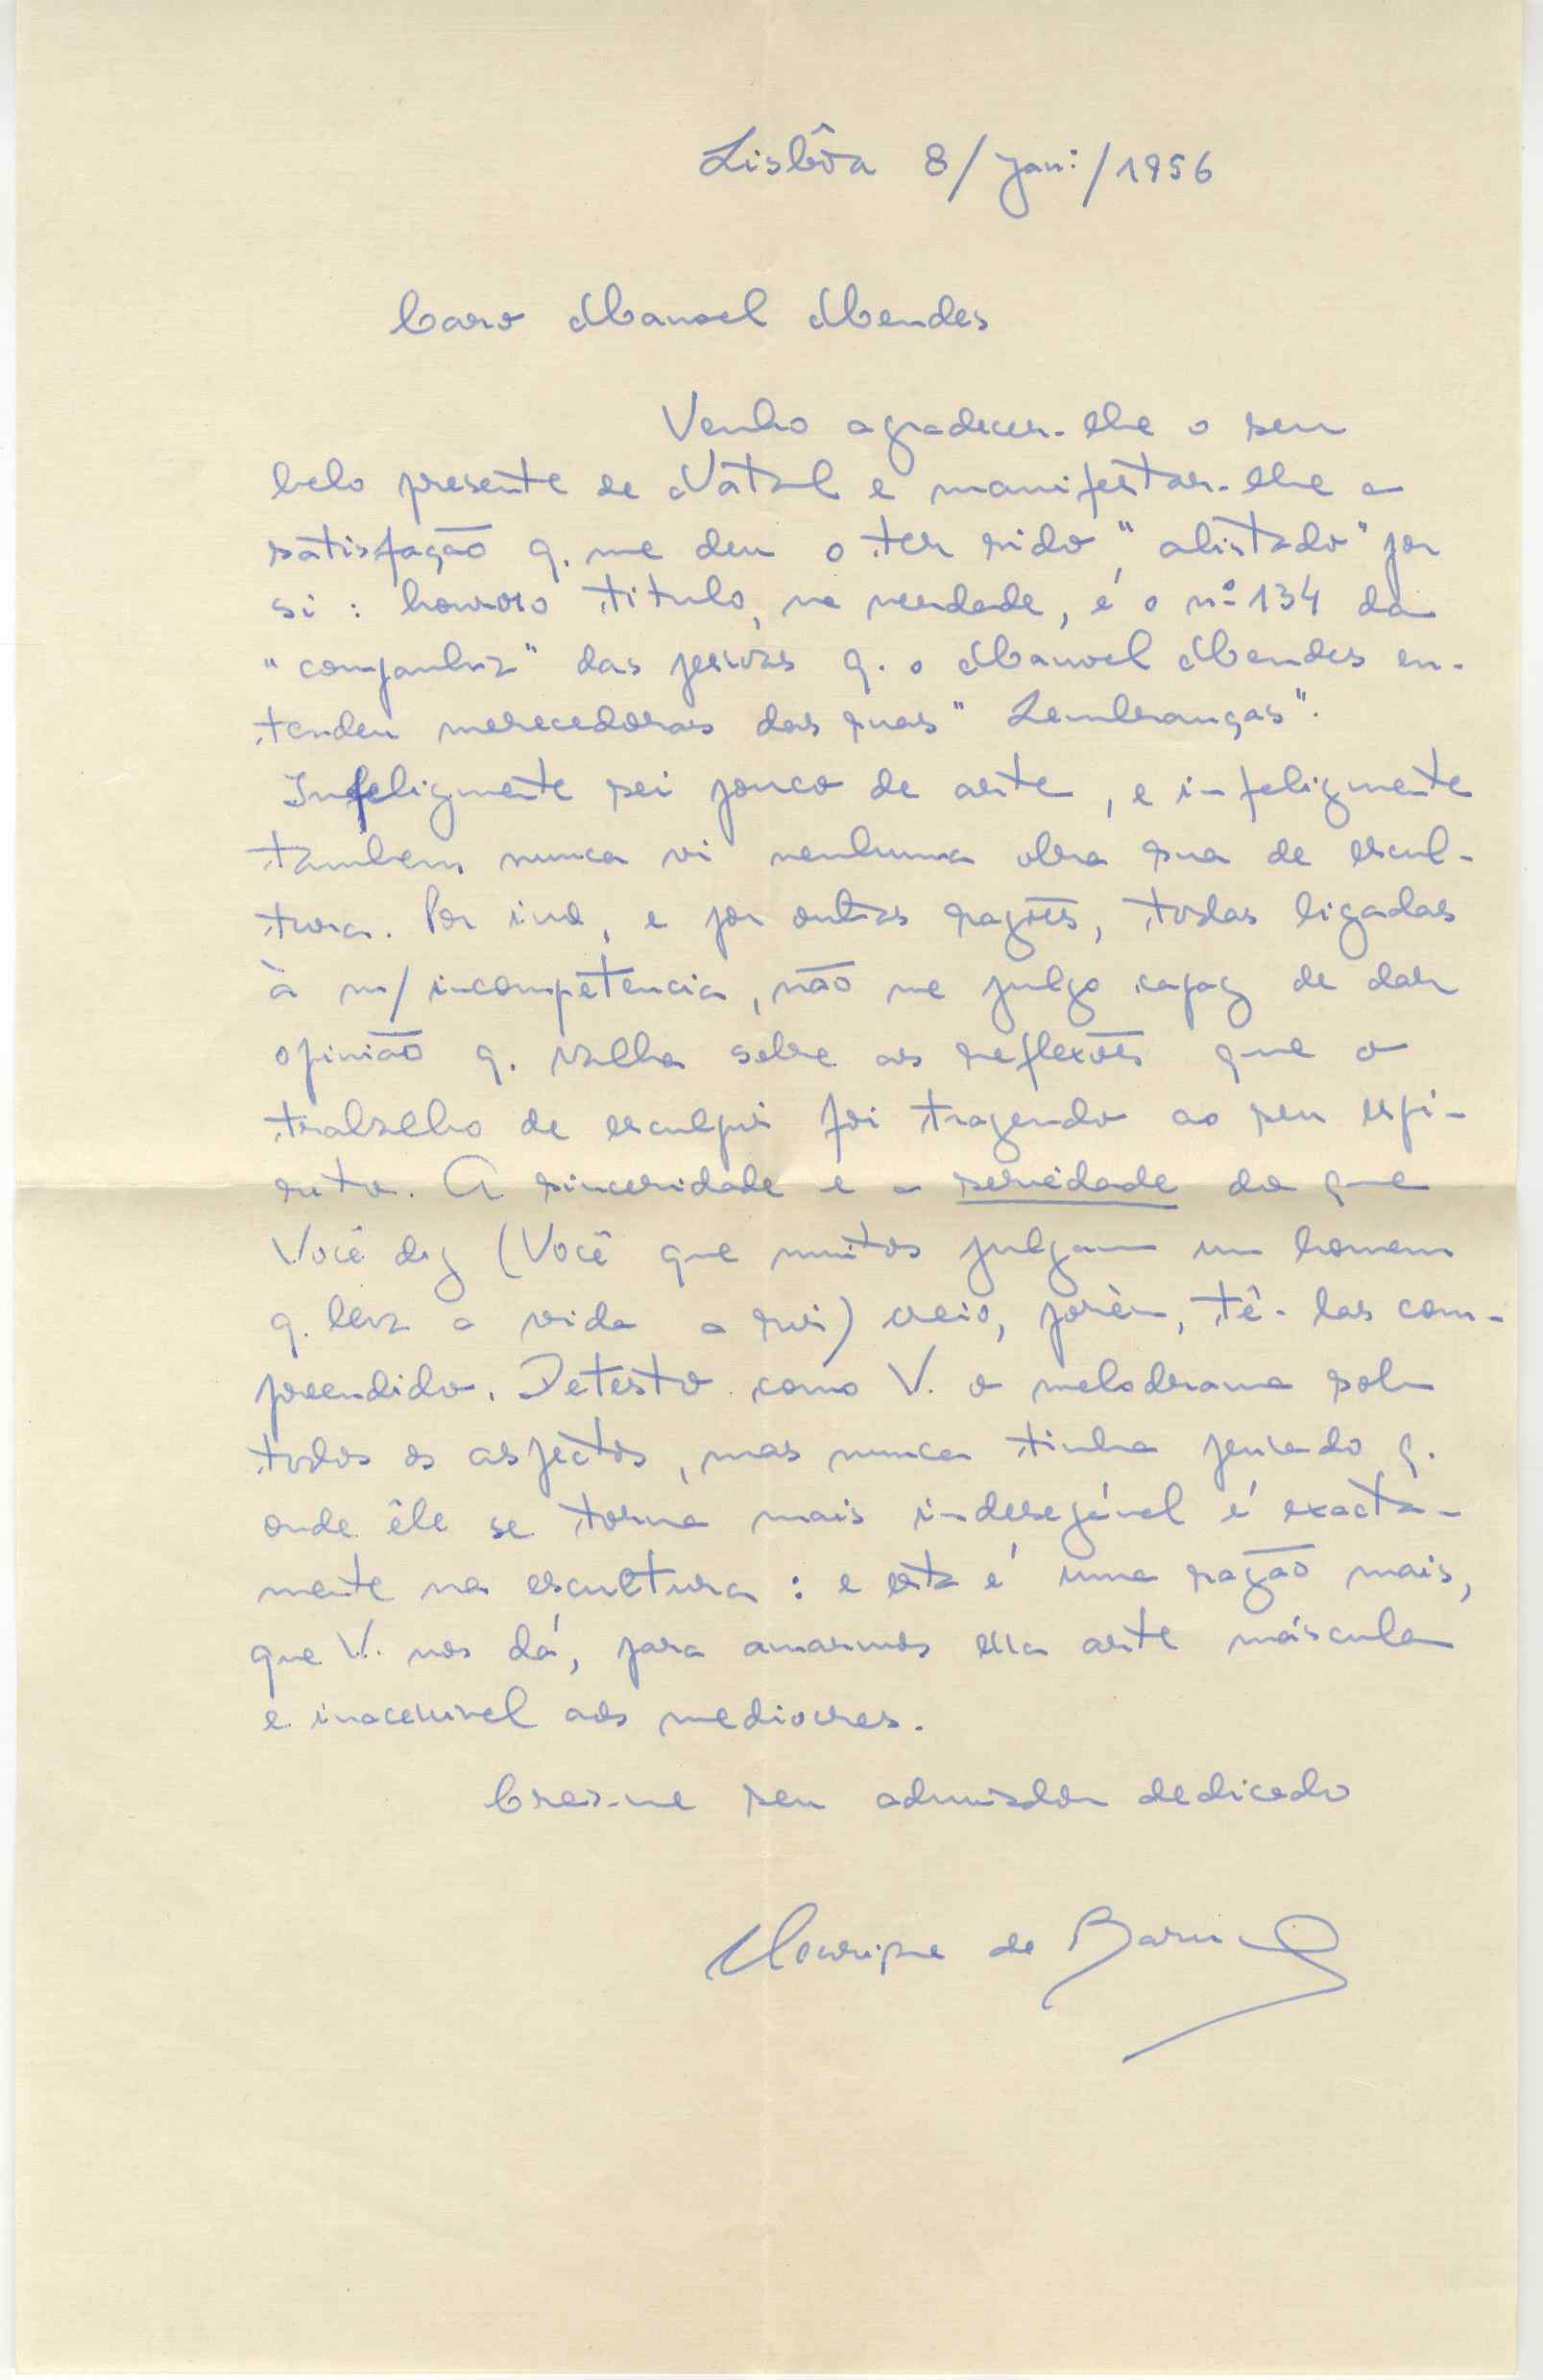 Lisbôa 8/Jan:/1956
Caro Manuel Mendes
Venho agradecer-lhe o seu
belo presente de Natal e manifestar-lhe a
satisfação q. me deu o ter sido "alistado" por
si: honroso titulo, na verdade, é o nº 134 da
"companhia" das pessoas q. o Manuel Mendes en-
tendeu merecedoras das suas "Lembranças".
Infelizmente sei pouco de arte, e infelizmente
tambem nunca vi nenhuma obra sua de escul-
tura. Por isso, e por outras razões, todas ligadas
à m/ incompetencia, não me julgo capaz de dar
opinião q. valha sobre as reflexões que o
trabalho de esculpir foi trazendo ao seu espi-
rito. A sinceridade e a seriedade do que
Você diz (Você que muitos julgam um homem
q. leva a vida a rir) creio, porèm, tê-las com-
preendido. Detesto como V. o melodrama sob
todos os aspectos, mas nunca tinha pensado q.
onde êle se torna mais indesejável é exacta-
mente na escultura: e esta é uma razão mais,
que V. nos dá, para amarmos essa arte máscula
e inacessivel aos mediocres.
Creia-me seu admirador dedicado
Henrique de Barros